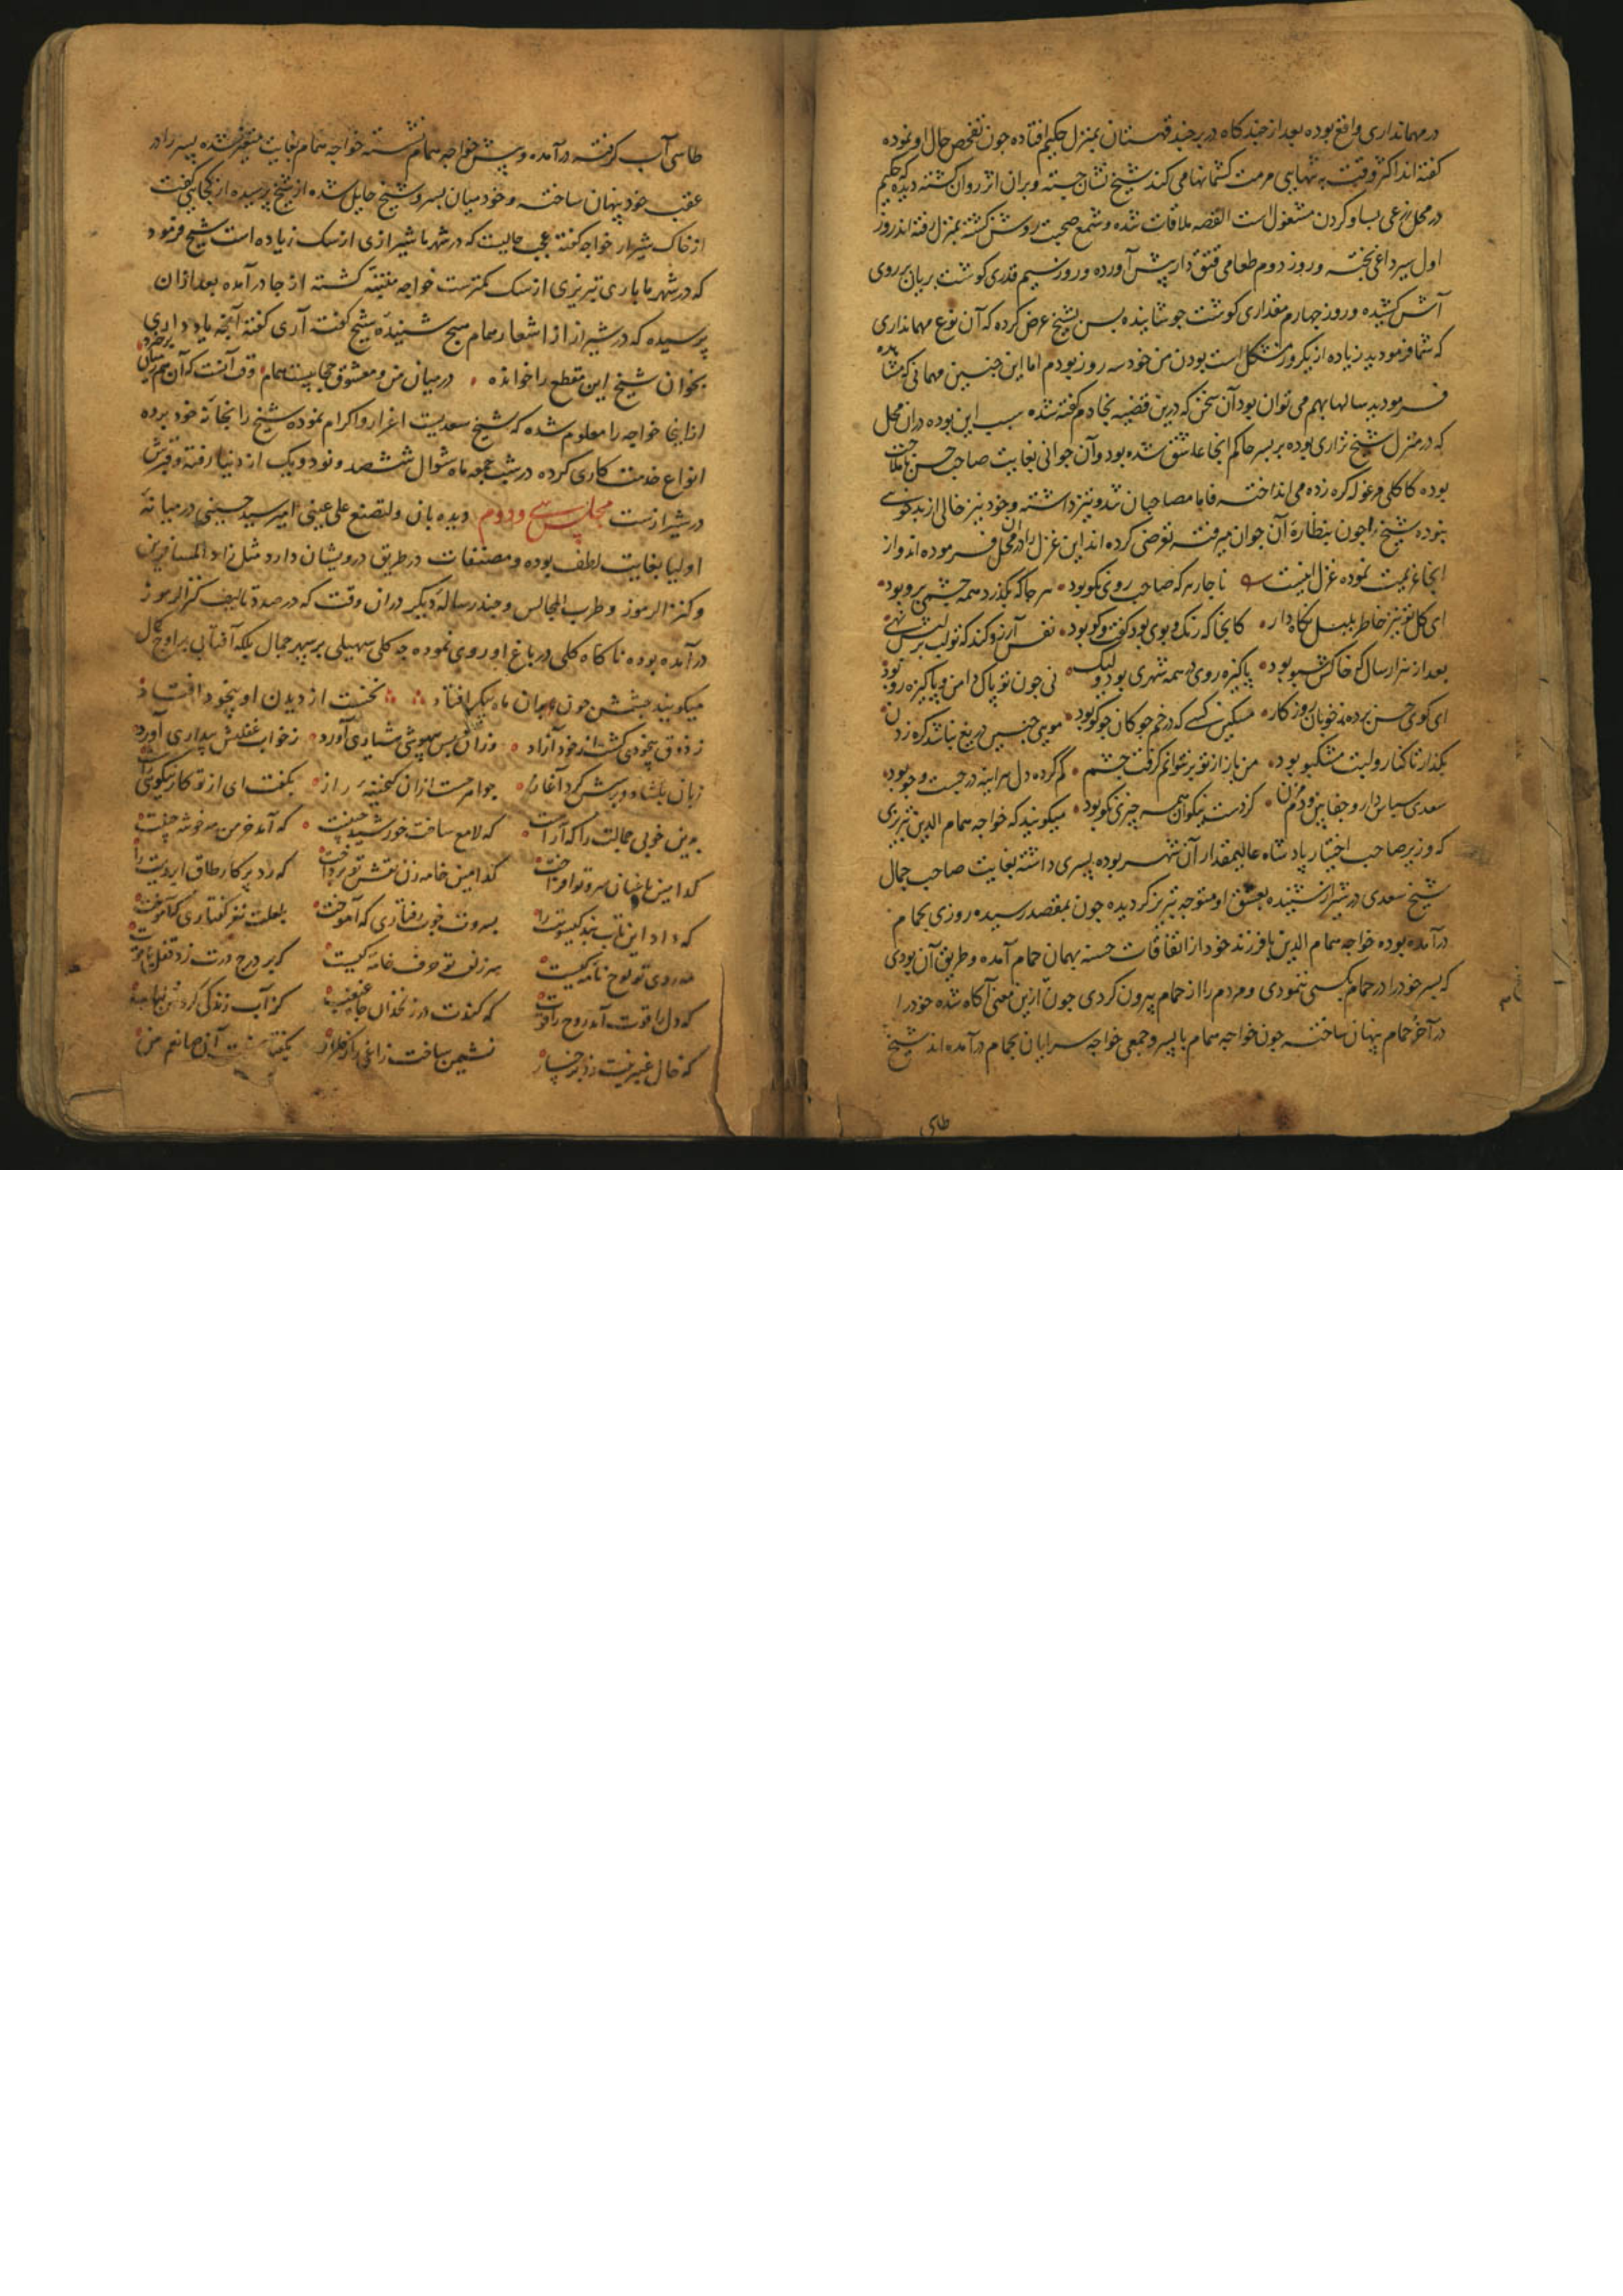 در مهمانداری واقع بوده بعد از چند کاه در بیرجند قهستان بمنزل حکیم افتاده چون تفحص حال او نموده
کفته اند اکثر وقت به تنهایی مرمت کشمانها می کند شیخ نشان جسته و بران اثر روان کشته دیده که حکیم
در محل زرعی بساو کردن مشغول است القصه ملاقات شده و شمع صحبت روشن کشته بمنزل رفته اند روز
اول سیرداغی پخته و روز دوم طعامی قتق دار پیش آورده و روز سیم قدری کوشت بریان بر روی
آش کشیده و روز چهارم مقداری کوشت جوشانیده پس بشیخ عرض کرده که آن نوع مهمانداری
که شما فرمودید زیاده از یکروز مشکل است بودن من خود سه روز بودم اما این چنین مهمانی که شما
فرمودید سالها بهم می توان بود آن سخن که درین قضیه بخادم کفته شده سبب این بوده دران محل
که در منزل شیخ نزاری بوده بر پسر حاکم انجا عاشق شده بود و آن جوانی بغایت صاحب حسن با ملاحت
بوده کاکلی مرغوله کره زده می انداخته فاما مصاحبان تند و تیز داشته و خود نیز خالی از بدخویی
نبوده شیخ را چون بنظاره آن جوان میرفته تعرضی کرده اند این غزل را دران محل فرموده اند و از
انجا عزیمت نموده غزل اینست ناچار هر که صاحب روی نکو بود هر جا که بکذرد همه چشمی برو بود
ای کل تو نیز خاطر بلبل نکاه دار کانجا که رنک و بوی بود کفت و کو بود نفس آرزو کند که تو لب بر لبش نهی
بعد از هزار سال که خاکش سبو بود پاکیزه روی در همه شهری بود ولیک نی چون تو پاک دامن و پاکیزه رو بود
ای کوی حسن برده ز خوبان روزکار مسکین کسی که در خم چوکان چو کو بود مویی چنین دریغ نباشد کره زدن
بکذار تا کنار و لبت مشکبو بود من باز از تو بر نتوانم کرفت چشم کم کرده دل هر آینه در جست و جو بود
سعدی سپاس دار و جفا بین و دم مزن کز دست نیکوان همه چیزی نکو بود میکویند که خواجه همام الدین تبریزی
که وزیر صاحب اختیار پادشاه عالیمقدار آن شهر بوده پسری داشته بغایت صاحب جمال
شیخ سعدی در شیراز شنیده بعشق او متوجه تبریز کردیده چون بمقصد رسیده روزی بحمام
درآمده بوده خواجه همام الدین با فرزند خود از اتفاقات حسنه بهمان حمام آمده و طریق آن بودی
که پسر خود را در حمام بکسی ننمودی و مردم را از حمام بیرون کردی چون ازین معنی آکاه شده خود را
در آخر حمام پنهان ساخته چون خواجه همام با پسر و جمعی خواجه سرایان بحمام درآمده اند شیخ
طاسی
طاسی آب کرفته درآمده و پیش خواجه همام نشسته خواجه همام بغایت متغیر شده پسر را در
عقب خود پنهان ساخته و خود میان پسر و شیخ حایل شده از شیخ پرسیده از کجایی کفت
از خاک شیراز خواجه کفته عجب حالیست که در شهر ما شیرازی از سک زیاده است شیخ فرمود
که در شهر ما باری تبریزی از سک کمترست خواجه متنبه کشته از جا درآمده بعد ازان
پرسیده که در شیراز از اشعار همام هیچ شنیده شیخ کفت آری کفته آنچه یاد داری
بخوان شیخ این مقطع را خوانده در میان من و معشوق حجابیست همام وقت آنست که آن هم ز میان برخیزد
از اینجا خواجه را معلوم شده که شیخ سعدیست اعزاز و اکرام نموده شیخ را بخانه خود برده
انواع خدمت کاری کرده در شب جمعه ماه شوال ششصد و نود و یک از دنیا رفته و قبرش
در شیرازست مجلس سی و دوم و دیده بان ولتصنع علی عینی امیر سید حسینی در میانه
اولیا بغایت لطف بوده و مصنفات در طریق درویشان دارد مثل زاد المسافرین
و کنز الرموز و طرب المجالس و چند رساله دیکر دران وقت که در صدد تالیف کنز الرموز
درآمده بوده ناکاه کلی در باغ او روی نموده چه کلی سهیلی بر سپهر جمال بلکه آفتابی بر اوج کمال
میکویند چشمش چون بران ماه پیکر افتاد نخست از دیدن او بیخود افتاد
ز ذوق بیخودی کشت از خود آزاد وزان پس بیهوشی هشیاری آورد ز خواب غفلتش بیداری آورد
زبان بکشاد و پرسش کرد آغاز جواهر جست ازان کنجینه راز بکفت ای از تو کار نیکویی راست
بدین خوبی جمالت را که آراست که لامع ساخت خورشید جبینت که آمد خرمن مه خوشه چینت
کدامین باغبان سرو تو افراخت کدامین خامه زن نقش تو پرداخت که زد پرکار طاق ابرویت را
که داد این تاب بند کیسویت را بسروت خوب رفتاری که آموخت بلعلت نغز کفتاری که آموخت
مه روی تو لوح نامه کیست سر زلف تو حرف خامه کیست که بر درج درت زد قفل یاقوت
که دل را قوت آمد روح را قوت که کندت در زنخدان چاه غبغب کز آب زندکی کردش لبالب
که خال عنبرینت زد بر رخسار نشیمن ساخت زاغی را ز کلزار بکفتا آن صانعم من